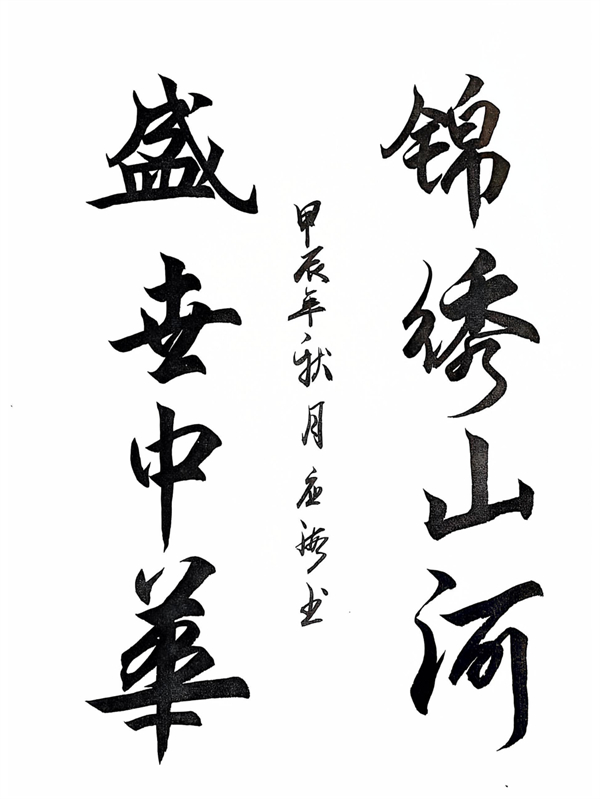 锦绣山河
盛世中華
甲辰年秋月应海书